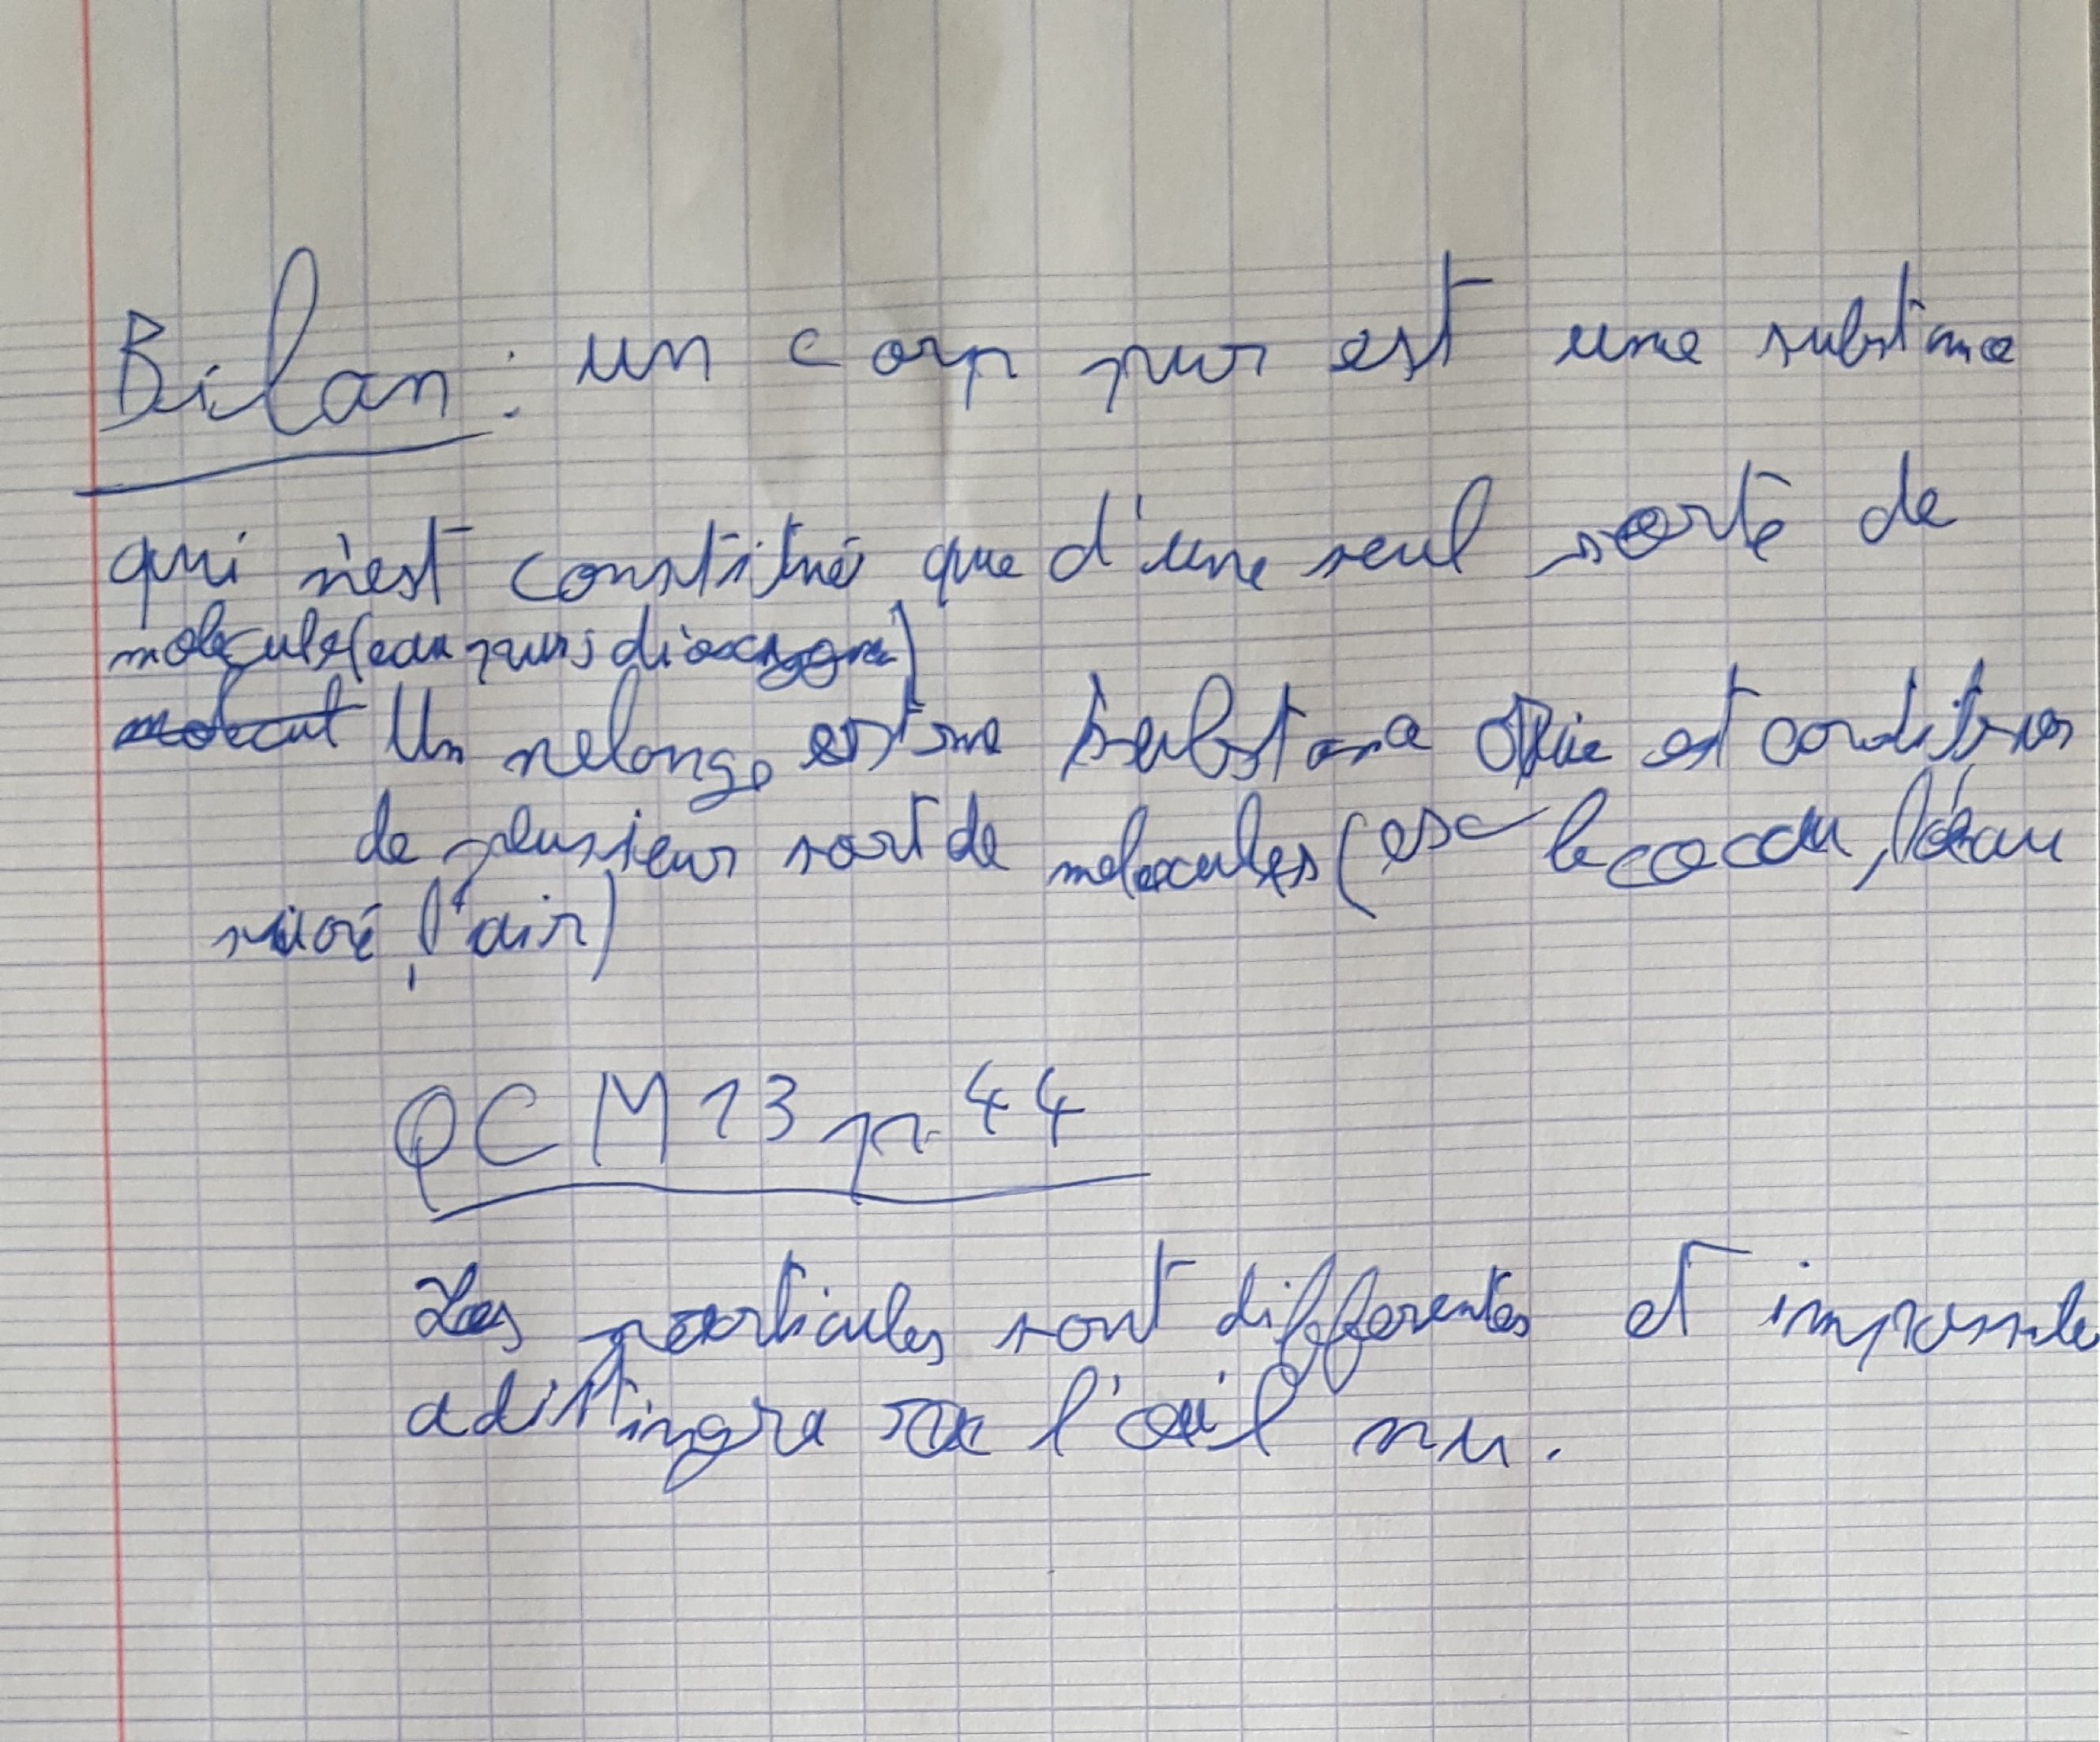 Bilan : un corp pur est une substance
qui n'est constitué que d'une seul sorte de
molecule (eau pur; dioxygene)
Un melange est une substance est
de plusieur sort de molecules (ex le cocau, l'eau
sucré, l'air)
QCM 13 p. 44
Les particules sont differentes et impossible
a distingra l'œil nu.